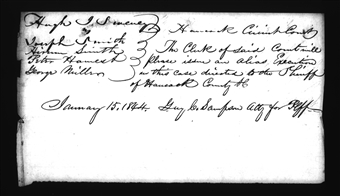 Hugh
vs
Joseph Smith
Hyrum Smith
Peter
George Miller
Hancock Circuit Court
The Clerk of said Court will
please issue an alias Execution
in this case directed to the Sheriff
of Hancock County Ill
January 15, 1844. Guy C. Sampson Atty for Plff